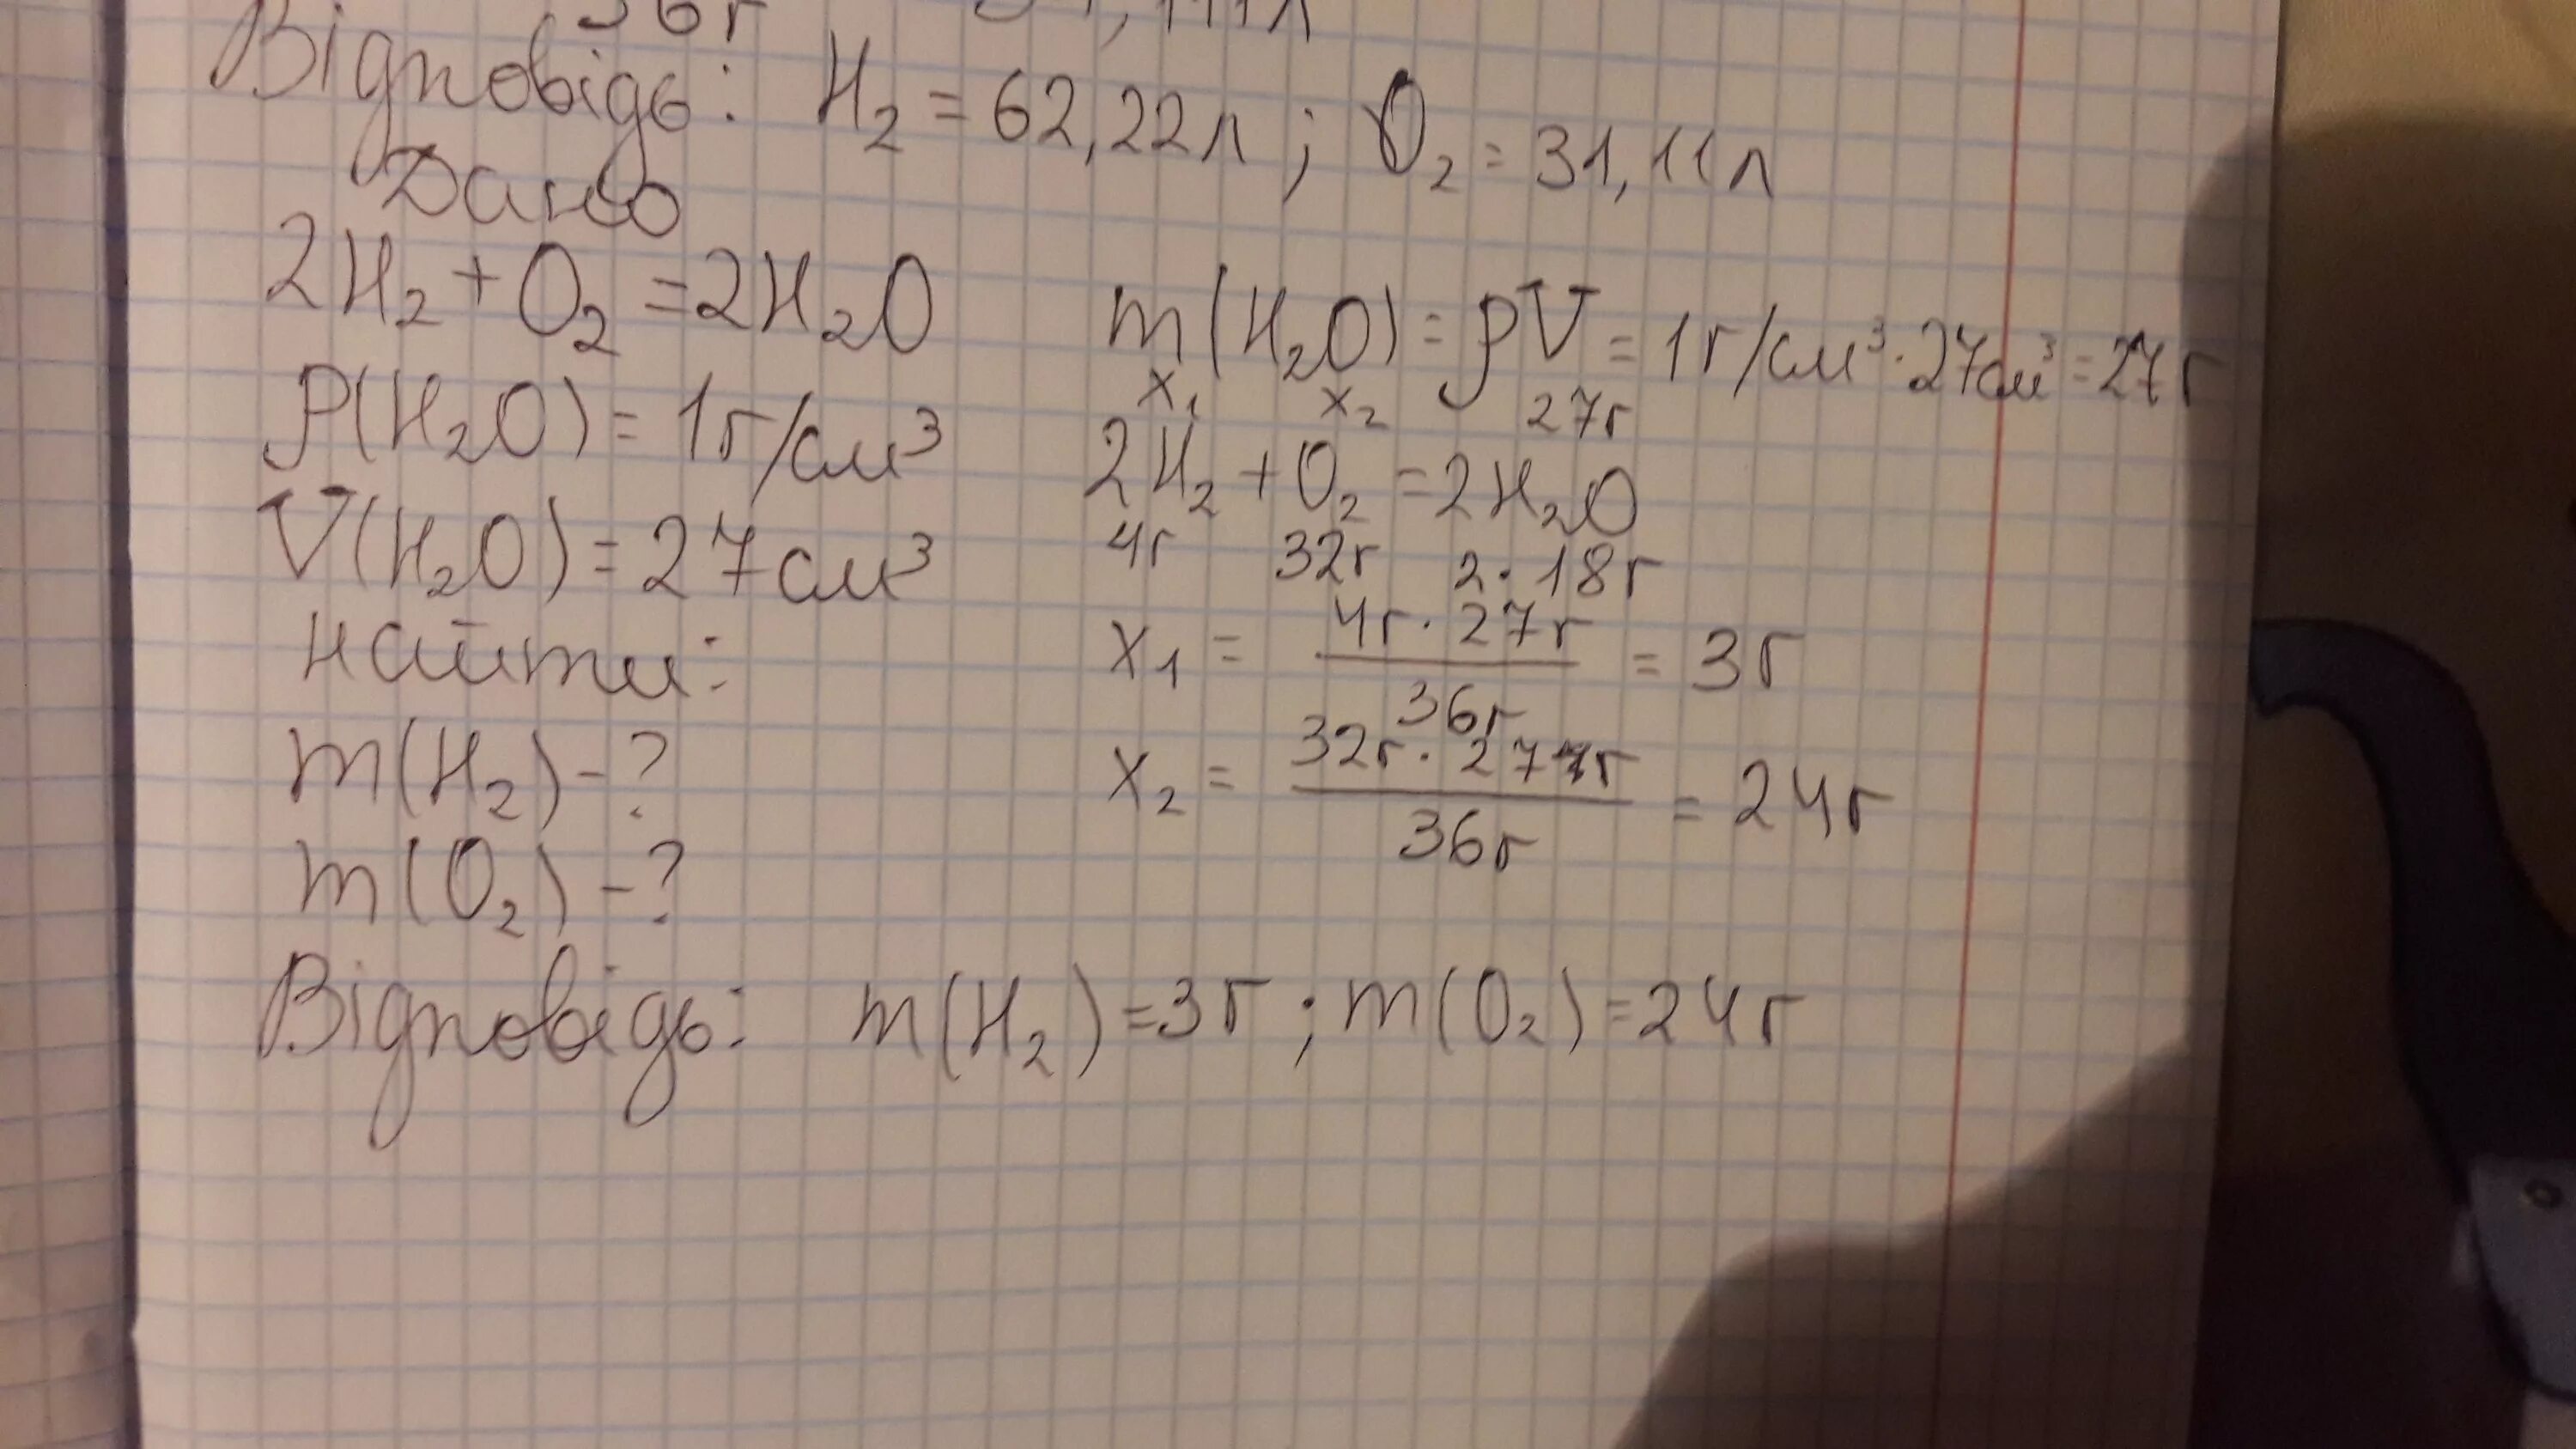 36г 31,111л
Відповідь: H₂ = 62,22л ; O₂ = 31,11л
Дано
2H₂ + O₂ = 2H₂O
ρ(H₂O) = 1г/см³
V(H₂O) = 27см³
найти:
m(H₂) - ?
m(O₂) - ?
m(H₂O) = ρV = 1г/см³ · 27см³ = 27г
x₁ x₂ 27г
2H₂ + O₂ = 2H₂O
4г 32г 2·18г
x₁ = 4г · 27г / 36г = 3г
x₂ = 32г · 27г / 36г = 24г
Відповідь: m(H₂) = 3г ; m(O₂) = 24г